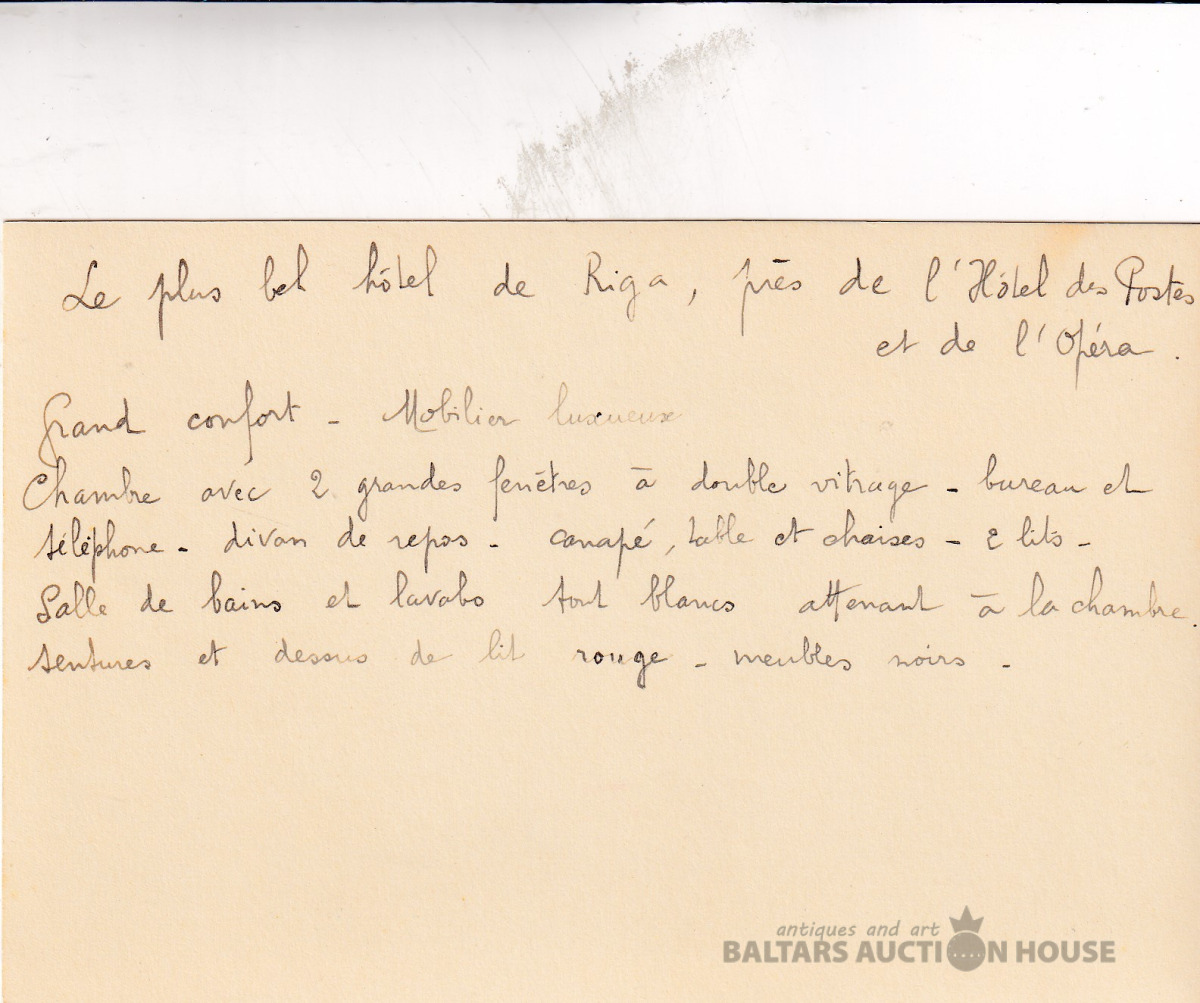 Le plus bel hôtel de Riga, près de l'Hôtel des Postes
et de l'Opéra.
Grand confort - Mobilier luxueux
Chambre avec 2 grandes fenêtres à double vitrage - bureau et
téléphone - divan de repos - canapé, table et chaises - 2 lits -
Salle de bains et lavabo tout blancs attenant à la chambre.
tentures et dessus de lit rouge - meubles noirs -
antiques and art
BALTARS AUCTION HOUSE